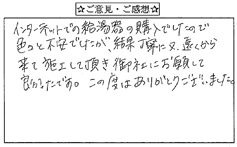 ☆ご意見・ご感想☆
インターネットでの給湯器の購入でしたので
色々と不安でしたが、結果丁寧に又、遠くから
来て施工して頂き御社にお願して
良かったです。この度はありがとうございました。